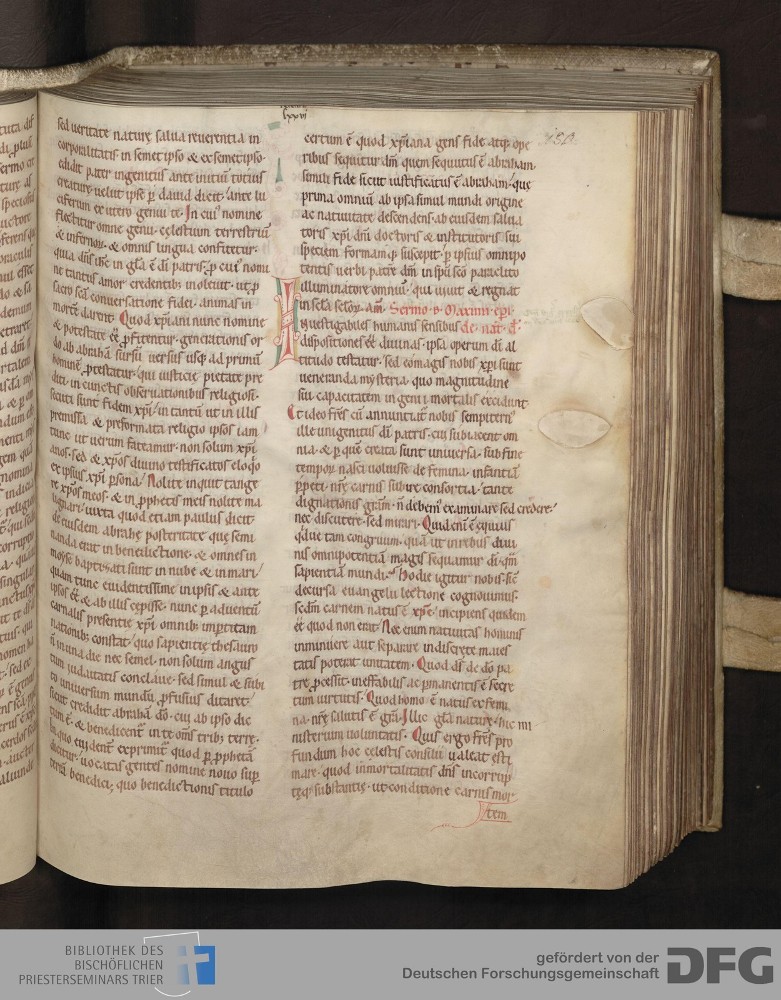 lxxvi
150
sed ueritate naturę salua reuerentia in
corporalitatis in semet ipso & ex semetipso
edidit pater ingenitus ante initiū totius
creaturę uelut ipse ꝑ dauid dicit. ante lu
ciferum ex utero genui te. In cui᾽ nomine
flectitur omne genu. cęlestium terrestriū
& infernoꝝ. & omnis lingua confitetur.
quia dn̄s ih̄c in gl̄a ē dī patris. ꝓ cui᾽ nomi
ne tantus amor credentib; inoleuit. ut ꝓ
sacro sc̄a conuersatione fidei. animas in
morte darent. Quod xp̄iani nunc nomine
& potestate & ꝓfitentur. generationis or
do ab abraham sursū uersus usq; ad primū
hominē ꝓtestatur. qui iusticię pietate pre
diti. in cunctis obseruationibus religiosi.
secuti sunt fidem xp̄i. in tantū ut in illis
premissa & preformata religio ipsos iam
tunc ut uerum fateamur. non solum xp̄i
anos. sed & xp̄os diuino testificatos eloq̊o
ex ipsius xp̄i ꝑsona. Nolite inquit tange
re xp̄os meos. & in ꝓphetis meis nolite ma
lignari. iuxta quod etiam paulus dicit
de eiusdem abrahę posteritate quę semi
nanda erat in benedictione. & omnes in
moyse baptizati sunt in nube & in mari.
quam tunc euidentissime in ipsis & ante
ipsos & & ab illis cępisse. nunc ꝑ aduentū
carnalis presentię xp̄i omnib; imꝑtitam
nationib; constat. quo sapientię thesaurꝰ
ñ in una die nec semel. non solum angus
tum iudaitatis conclaue. sed simul & subi
to uniuersum mundū ꝓfusius ditaret.
sicut credidit abrahā dō. cui ab ipso dic
tum ē. & benedicent᾽ in te om̄s trib; terrę.
In quo euident᾽ exprimit᾽ quod ꝑ ꝓphetā
dicitur. uocatas gentes nomine nouo suꝑ
terrā benedici. quo benedictionis titulo
certum ē quod xp̄iana gens fide atq; ope
ribus sequitur dm̄ quem sequutus ē abraham
simili fide sicut iustificatus ē abraham. quę
prima omniū ab ipsa simul mundi origine
ac natiuitate descendens. ab eiusdem salua
toris xp̄i dn̄i doctoris & institutoris sui
speciem formamq; suscepit. ꝑ ipsius omnipo
tentis uerbi patre dm̄ in sp̄u sc̄o paraclito
illuminatore omniū. qui uiuit & regnat
in sc̄la sc̄loꝝ. am̄. Sermo .b. Maximi ep̄i
Inuestigabiles humanis sensibus de nat̄. d̄.
dispositiones & diuinas. ipsa operum dī al
titudo testatur. sed eo magis nobis xp̄i sunt
ueneranda mysteria. quo magnitudine
sui capacitatem ingenii mortalis excedunt.
Et ideo fr̄s cū annunciat᾽ nobis sempitern᾽
ille unigenitus dī patris. cui subiacent om
nia. & ꝑ quē creata sunt uniuersa. sub fine
temporꝝ nasci uoluisse de femina. infantiā
ꝑpeti. nr̄ę carnis subire consortia. tantę
dignationis gr̄am. ñ debem᾽ examinare sed credere.
nec discutere. sed mirari. Quid enī ē equius
qͥdue tam congruum. quā ut in rebus diui
nis omnipotentiā magis sequamur dī. qͣm
sapientiā mundi. Hodie igitur nobis. sic̄
decursa euangelii lectione cognouimus.
scdm̄ carnem natus ē xp̄c. incipiens quidem
& quod non erat. Nec enim natiuitas hominis
inminuere aut separare indiscrete maies
tatis poterat unitatem. Quod ds̄ de dō pa
tre ꝓcessit. ineffabilis ac ꝑmanentis ē secre
tum uirtutis. Quod homo ē natus ex femi
na. nr̄ę salutis ē gr̄a. Illic gl̄a naturę. hic mi
nisterium uoluntatis. Quis ergo fr̄s pro
fundum hoc cęlestis consilii ualeat esti
mare. quod inmortalitatis dn̄s incorrup
tęq; substantię. ut conditione carnis mor
tem
BIBLIOTHEK DES
BISCHÖFLICHEN
PRIESTERSEMINARS TRIER
gefördert von der
Deutschen Forschungsgemeinschaft
DFG